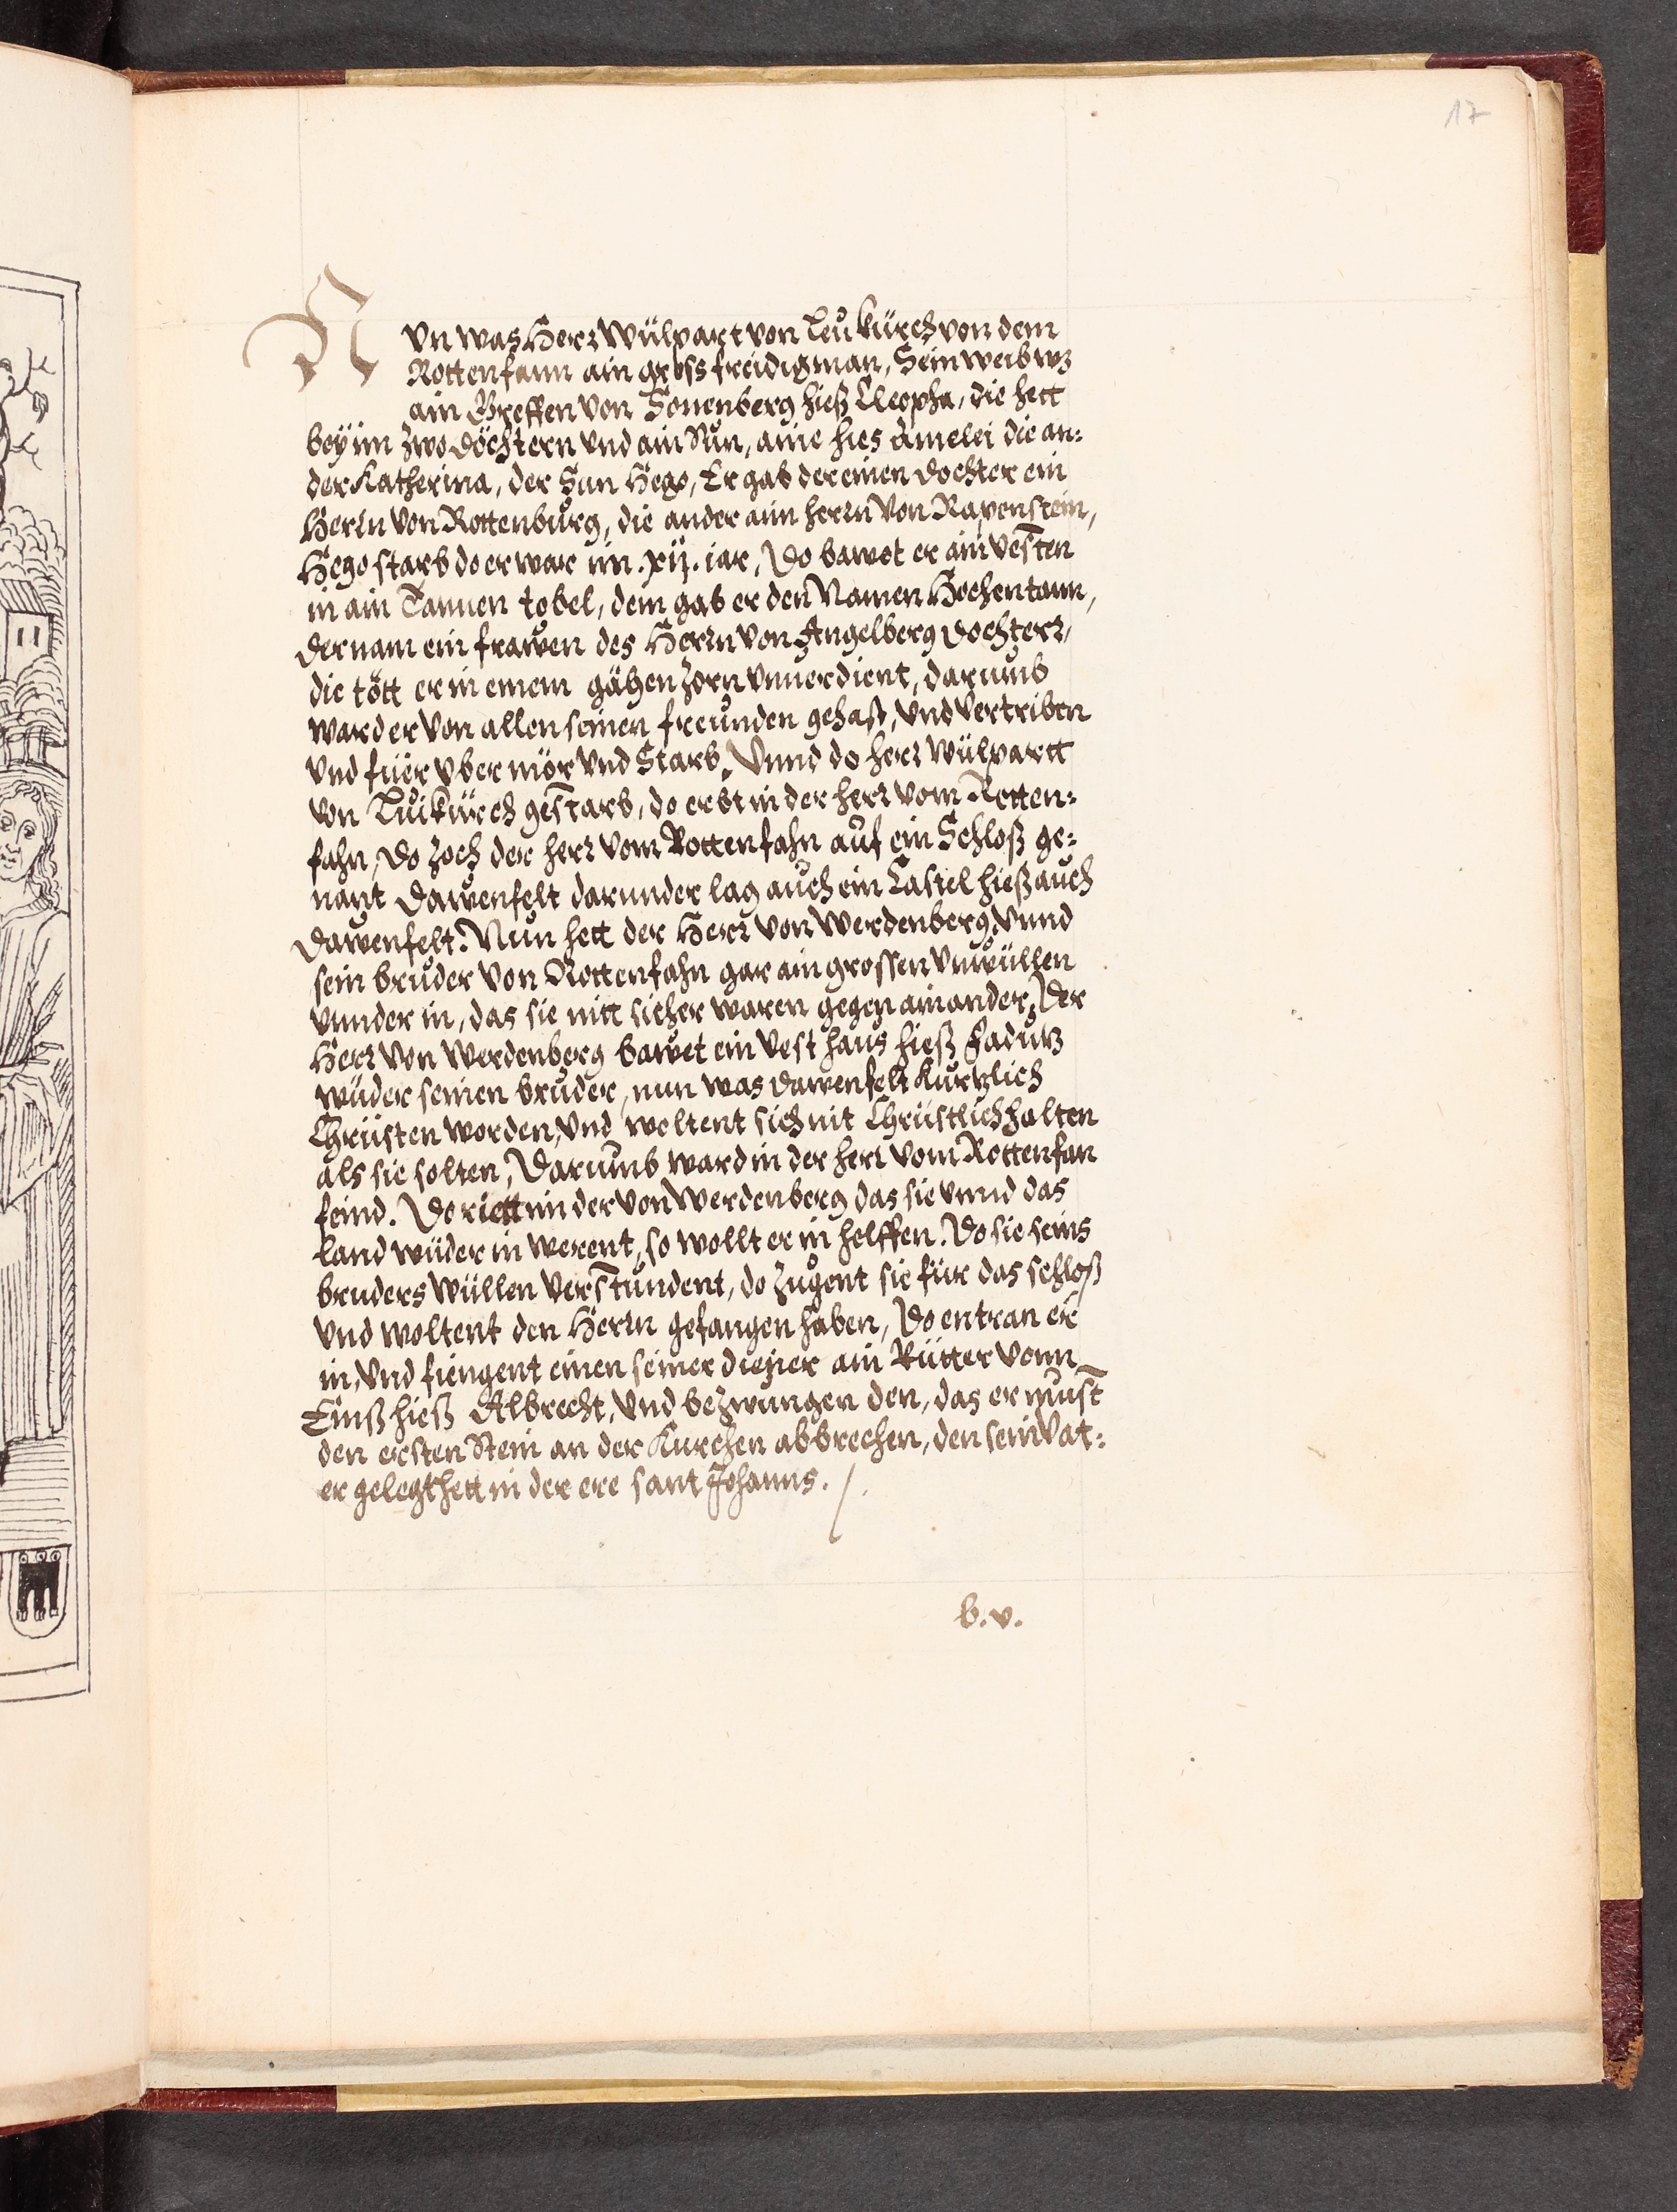 17
NVn was Herr Wülpart von Leukürch von dem
Rottenfann ain gross freidig man, Sein weib wz
ain Greffen von Sonenberg hieß Cleopha, die hett
bey im zwo döchtern vnd ain Sun, aine hies Amelei die an:
der Katherina, der Sun Hego, Er gab der einen dochter ein
Herrn von Rottenburg, die ander aim herrn von Rapenstein,
Hego starb do er war im .xij. iar, Do bawet er ain vesten
in ain Tannen tobel, dem gab er den Namen Hochentann,
der nam ein frawen des Herrn von Angelberg dochterr,
die tött er in einem gähen zorn vnuerdient, darumb
ward er von allen seinen freunden gehaß, vnd vertriben
vnd fuer vber mör vnd Starb. Vnnd do herr wülpartt
von Luikürch gestarb, do erbt in der herr vom Rotten:
fahn, Do zoch der herr vom Rottenfahn auf ein Schloß ge:
nant Dawenfelt darunder lag auch ein Castel hieß auch
Dawenfelt. Nun hett der Herr von Werdenberg vnnd
sein bruder von Rottenfahn gar ain grossen vnwüllen
vnnder in, das sie nitt sicher waren gegen ainander, Der
Herr von Werdenberg bawet ein vest haus hieß Fadutz
wüder seinen bruder, nun was dawenfelt kurtzlich
Chrüsten worden, vnd woltent sich nit Chrüstlich halten
als sie solten, Darumb ward in der herr vom Rottenfan
feind. Do riett in der von Werdenberg das sie vnnd das
land wüder in werent, so wollt er in helffen. Do sie seins
bruders wüllen verstundent, do zugent sie für das schloß
vnd woltent den Herrn gefangen haben, Do entran er
in, vnd fiengent einen seiner diener ain Rütter vonn
Emß hieß Albrecht, vnd bezwungen den, das er must
den ersten Stein an der Kurchen abbrechen, den sein vat:
er gelegt hett in der ere sant Johanns. /.
b.v.